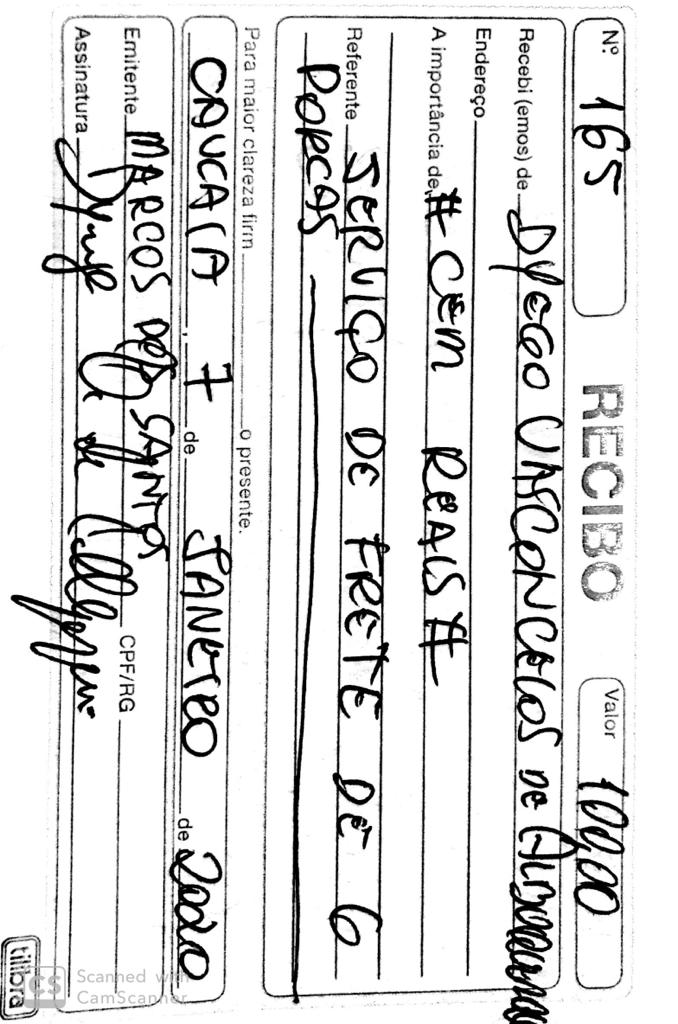 Nº 165 RECIBO Valor 100,00
Recebi (emos) de DYEGO VASCONCELOS DE
Endereço
A importância de # CEM REAIS #
Referente SERVIÇO DE FRETE DE 6
PORCAS
Para maior clareza firm o presente.
CAUCAIA, 7 de JANEIRO de 2020
Emitente MARCOS DOS SANTOS CPF/RG
Assinatura
tilibra
CS Scanned with CamScanner